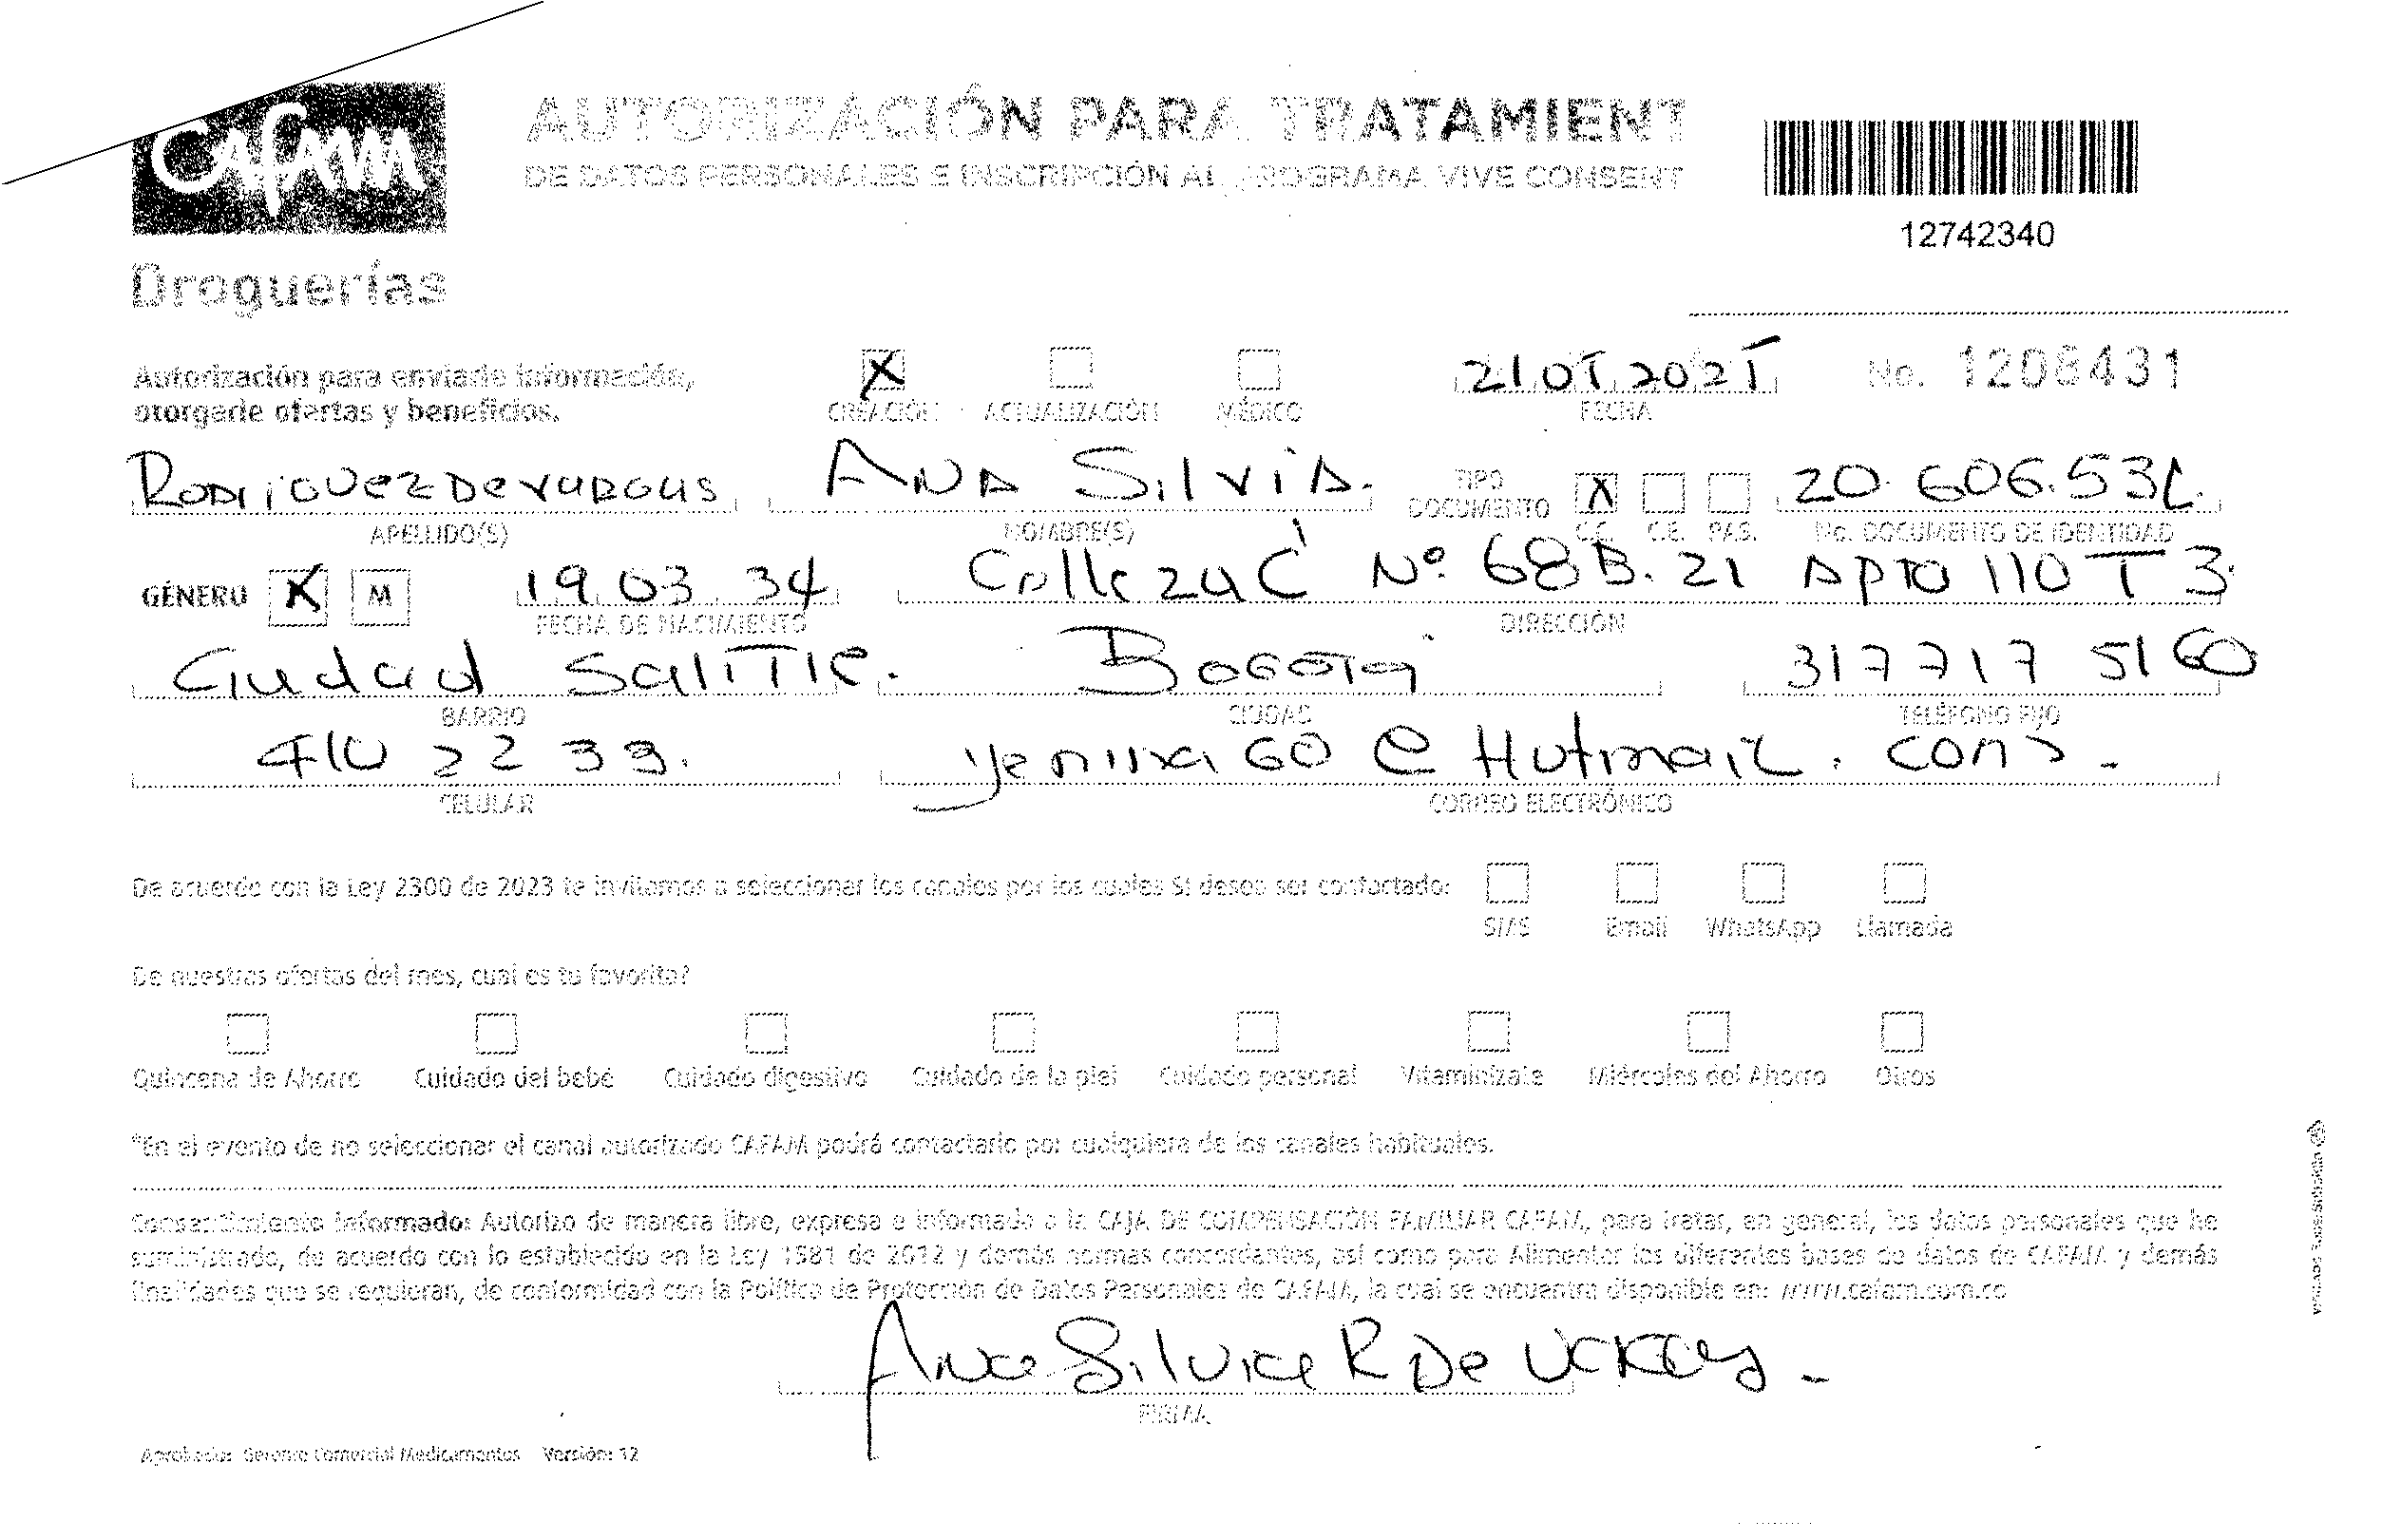 Cafam
Droguerías
AUTORIZACIÓN PARA TRATAMIENT
DE DATOS PERSONALES E INSCRIPCIÓN AL PROGRAMA VIVE CONSENT
12742340
Autorización para enviarle información,
otorgarle ofertas y beneficios.
X
CREACIÓN ACTUALIZACIÓN MÉDICO
FECHA
No. 1208431
Rodriguez De vargas Ana Silvia.
APELLIDO(S) NOMBRE(S)
TIPO DOCUMENTO X
C.C. C.E. PAS.
20.606.53
No. DOCUMENTO DE IDENTIDAD
GÉNERO X M 19 03 34 Calle 24 C Nº. 68B.21 Apto 110 T 3
FECHA DE NACIMIENTO DIRECCIÓN
Ciudad Salitre. Bogota 317717 5160
BARRIO CIUDAD TELÉFONO FIJO
410 22 33. @ Hotmail.com -
CELULAR CORREO ELECTRÓNICO
De acuerdo con la Ley 2300 de 2023 te invitamos a seleccionar los canales por los cuales SI deseo ser contactado:
SMS Email WhatsApp Llamada
De nuestras ofertas del mes, cual es tu favorita?
Quincena de Ahorro Cuidado del bebé Cuidado digestivo Cuidado de la piel Cuidado personal Vitaminízate Miércoles del Ahorro Otros
*En el evento de no seleccionar el canal autorizado CAFAM podrá contactarlo por cualquiera de los canales habituales.
Consentimiento informado: Autorizo de manera libre, expresa e informada a la CAJA DE COMPENSACIÓN FAMILIAR CAFAM, para tratar, en general, los datos personales que he
suministrado, de acuerdo con lo establecido en la Ley 1581 de 2012 y demás normas concordantes, así como para Alimentar las diferentes bases de datos de CAFAM y demás
finalidades que se requieran, de conformidad con la Política de Protección de Datos Personales de CAFAM, la cual se encuentra disponible en: www.cafam.com.co
Ana Silvia R De Vargas -
FIRMA
Aprobado: Gerente Comercial Medicamentos Versión: 12